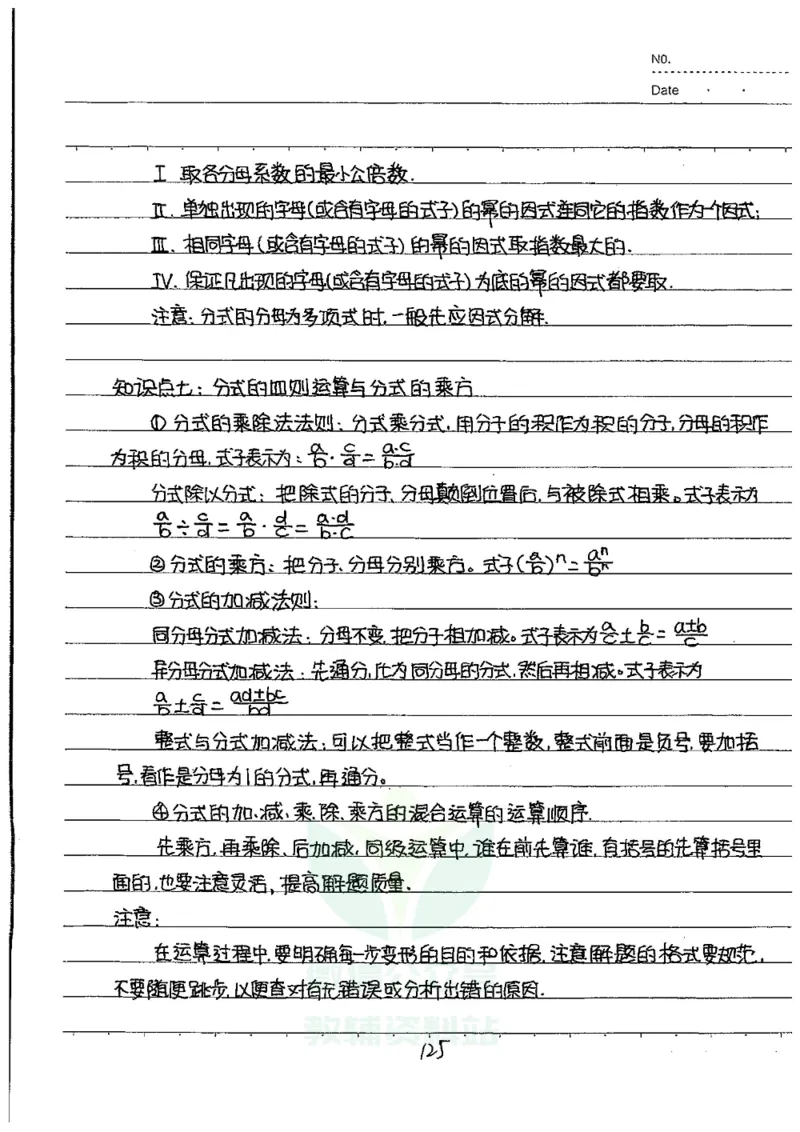 NO.
Date
I 取各分母系数的最小公倍数.
II. 单独出现的字母(或含有字母的式子)的幂的因式连同它的指数作为一个因式;
III. 相同字母(或含有字母的式子)的幂的因式取指数最大的.
IV. 保证凡出现的字母(或含有字母的式子)为底的幂的因式都要取.
注意:分式的分母为多项式时,一般先应因式分解.
知识点七:分式的四则运算与分式的乘方
① 分式的乘除法法则:分式乘分式,用分子的积作为积的分子,分母的积作
为积的分母,式子表示为: a/b · c/d = a·c/b·d
分式除以分式:把除式的分子、分母颠倒位置后,与被除式相乘。式子表示为
a/b ÷ c/d = a/b · d/c = a·d/b·c
②分式的乘方:把分子、分母分别乘方。式子(a/b)^n = a^n/b^n
③分式的加减法则:
同分母分式加减法:分母不变,把分子相加减。式子表示为a/c ± b/c = a±b/c
异分母分式加减法:先通分,化为同分母的分式,然后再相减。式子表示为
a/b ± c/d = ad±bc/bd
整式与分式加减法:可以把整式当作一个整数,整式前面是负号,要加括
号,看作是分母为1的分式,再通分。
④分式的加、减、乘、除、乘方的混合运算的运算顺序.
先乘方、再乘除、后加减,同级运算中,谁在前先算谁,有括号的先算括号里
面的,也要注意灵活,提高解题质量.
注意:
在运算过程中,要明确每一步变形的目的和依据,注意解题的格式要规范,
不要随便跳步,以便查对有无错误或分析出错的原因.
微信公众号
教辅资料站
125